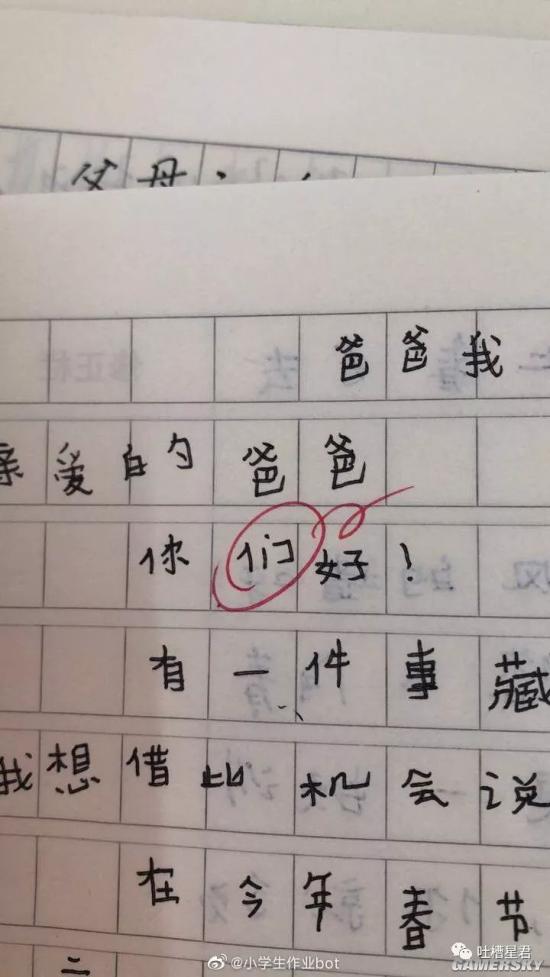 父母：
爸爸我
亲爱的爸爸
你们好！
有一件事藏
我想借比机会说
在今年春节
二
@小学生作业bot
吐槽星君
GAMERSKY